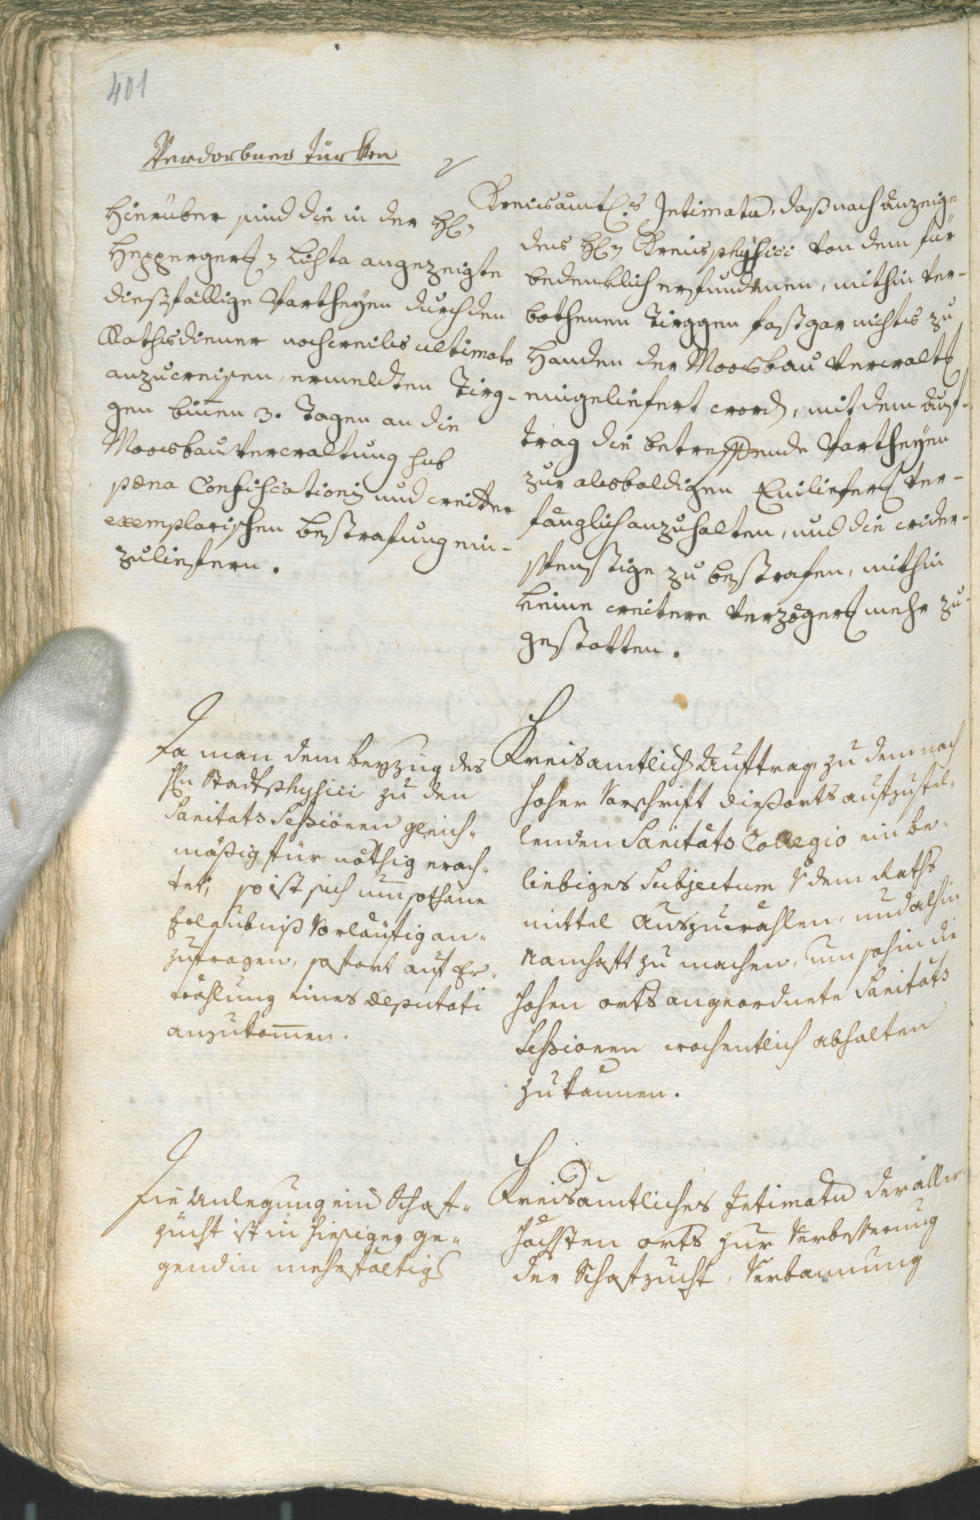 401
Verdorbner Türken
Hierüber sind die in der H:
Heppergers: Lista angezeigte
dießfällige Partheyen durch den
Rathsdiener nochereiles ultimato
anzuweisen, ermeldten Tirg-
gen binnen 3. Tagen an die
Moosbau Verwaltung sub
pæna Confiscationis und weitter
exemplarischen bestrafung ein-
zuliefern.
Kreisamtl:s Intimatum, daß nach Anzeige
des H: Kreisphysici von dem für
bedencklich erfundenen, mithin ver-
bothenen Tirggen fast gar nichts zu
Handen der Moosbau Verwalts
eingeliefert word, mit dem Auf-
trag die betreffende Partheyen
zur alsbaldigen Einlieferg ver-
fänglich anzuhalten, und die wider-
spenstige zu bestrafen, mithin
keine weitere Verzögerg mehr zu
gestatten.
Da man dem beyzug des
Hn Stadtphysici zu den
Sanitats Seßionen gleich-
mäßig für nöthig erach-
tet, so ist sich um sothane
Erlaubniß Vorläufig an-
zufragen, sofort auf Er-
wählung eines Deputati
anzukommen.
Kreisamtlich Auftrag, zu dem nach
hoher Vorschrift dießorts aufzustel-
lenden Sanitäts Collegio ein be-
liebiges Subjectum dem Raths
mittel Auszuwählen, und alhin
namhaft zu machen, um sohin die
hohen orts angeordnete Sanitäts
Seßionen wochentlich abhalten
zu können.
Die Anlegung ein Schaf-
zucht ist in hiesiger ge-
gend in mehrfältig
Kreisamtliches Intimatum der aller
höchsten orts zur Verbesserung
der Schafzucht, Verbannung